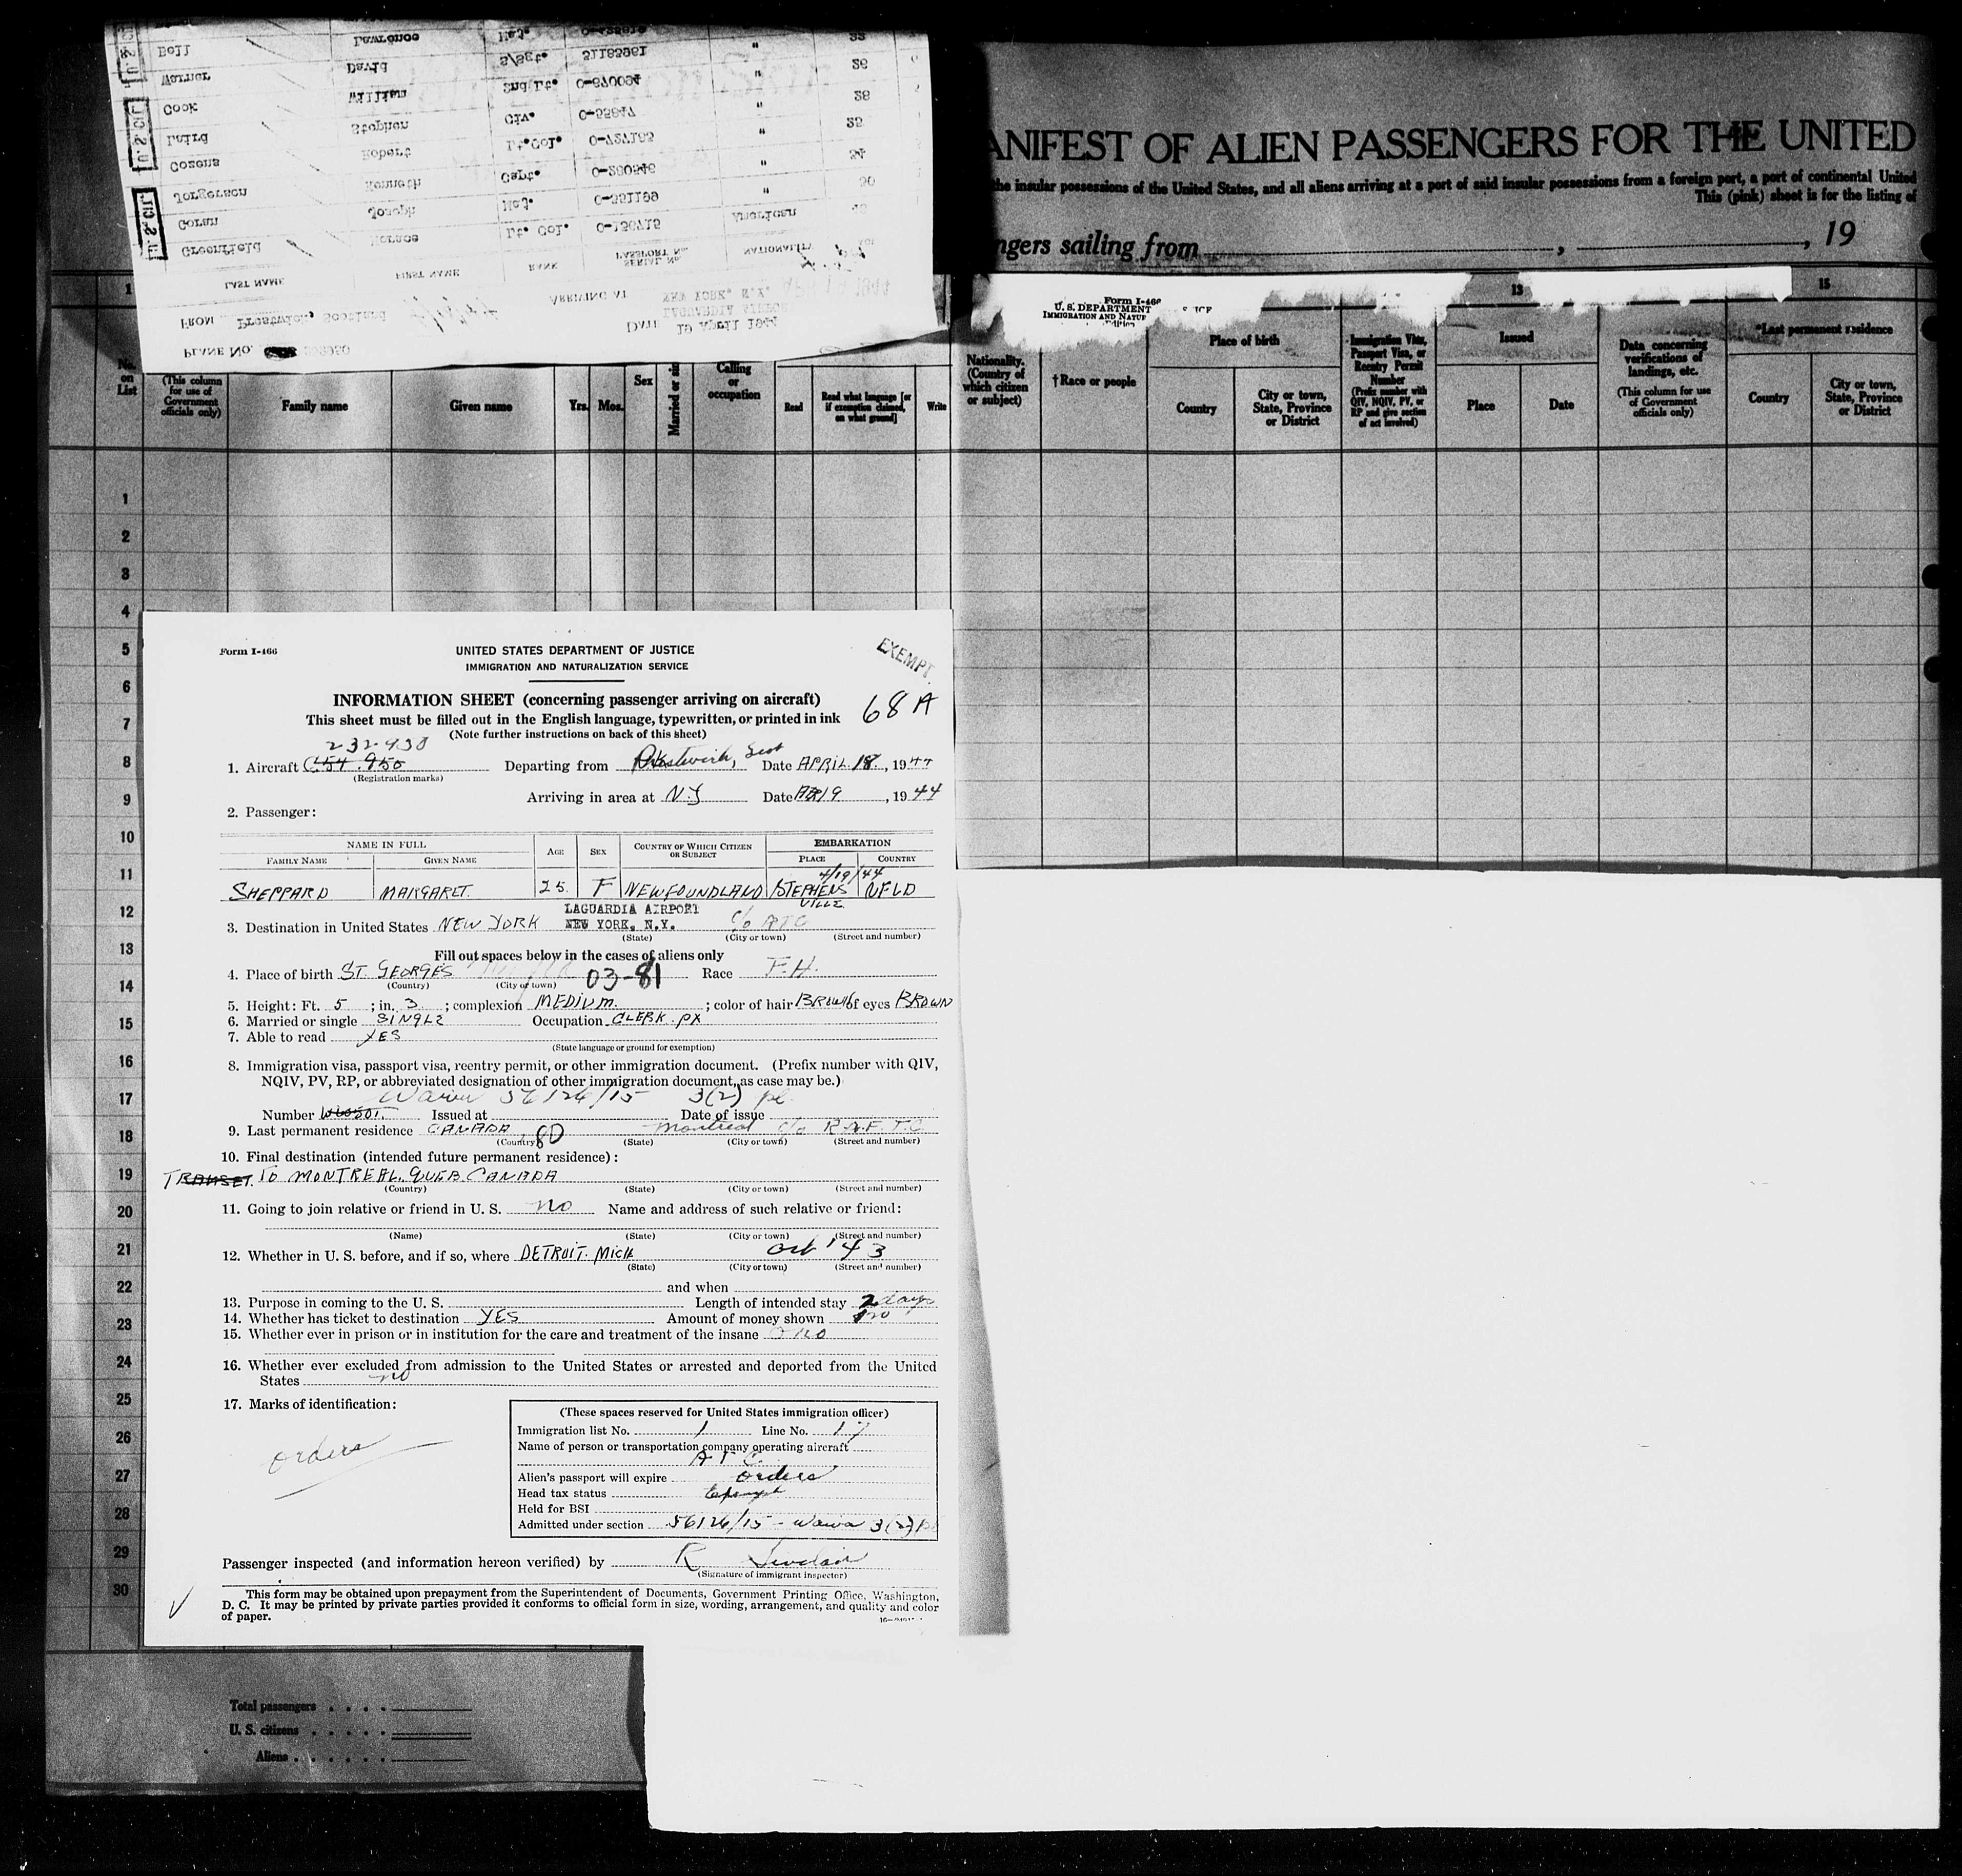 PLANE No.
FROM Prestwick, Scotland
DATE 19 April 1944
ARRIVING AT LAGUARDIA AIRPORT
NEW YORK, N.Y.
LAST NAME FIRST NAME RANK SERIAL No. PASSPORT No. NATIONALITY
Greenfield Horace Lt. Col. O-150715 American
Goran Joseph O-351199 " 30
Jorgerson Kenneth Capt. " 34
Cozens Robert Lt.Col. " 25
Laird Stephen Civ. " 28
Cook William 2nd Lt. " 26
Warner David S/Sgt. "
Bell Lawrence
U.S. CIT.
U.S. CIT.
ANIFEST OF ALIEN PASSENGERS FOR THE UNITED
the insular possessions of the United States, and all aliens arriving at a port of said insular possessions from a foreign port, a port of continental United
This (pink) sheet is for the listing of
ngers sailing from , , 19
Form I-466
U. S. DEPARTMENT
IMMIGRATION AND NATUR
13 15
No. on List
(This column for use of Government officials only)
Family name Given name Yrs. Mos. Sex
Calling or occupation
Read Read what language [or if exemption claimed, on what ground] Write
Nationality. (Country of which citizen or subject)
†Race or people
Place of birth
Country City or town, State, Province or District
Immigration Visa, Passport Visa, or Reentry Permit Number
(Prefix number with QIV, NQIV, PV, or RP and give section of act involved)
Issued
Place Date
Data concerning verifications of landings, etc.
(This column for use of Government officials only)
*Last permanent residence
Country City or town, State, Province or District
1
2
3
4
5
6
7
8
9
10
11
12
13
14
15
16
17
18
19
20
21
22
23
24
25
26
27
28
29
30
Form I-466
UNITED STATES DEPARTMENT OF JUSTICE
IMMIGRATION AND NATURALIZATION SERVICE
EXEMPT
INFORMATION SHEET (concerning passenger arriving on aircraft)
68 A
This sheet must be filled out in the English language, typewritten, or printed in ink
(Note further instructions on back of this sheet)
232-930
1. Aircraft C-54 . 950 Departing from Prestwick, Scot Date APRIL 18, 1944
(Registration marks)
Arriving in area at N.Y Date AP 19, 1944
2. Passenger:
NAME IN FULL AGE SEX COUNTRY OF WHICH CITIZEN OR SUBJECT EMBARKATION
FAMILY NAME GIVEN NAME PLACE COUNTRY
4/19/44
SHEPPARD MARGARET. 25. F NEWFOUNDLAND STEPHENSVILLE NFLD
LAGUARDIA AIRPORT
3. Destination in United States NEW YORK NEW YORK, N.Y. c/o ATC
(State) (City or town) (Street and number)
Fill out spaces below in the cases of aliens only
4. Place of birth ST. GEORGES 03-81 Race F.H.
(Country) (City or town)
5. Height: Ft. 5; in. 3; complexion MEDIUM.; color of hair BROWN of eyes BROWN
6. Married or single SINGLE Occupation CLERK. PX
7. Able to read YES
(State language or ground for exemption)
8. Immigration visa, passport visa, reentry permit, or other immigration document. (Prefix number with QIV,
NQIV, PV, RP, or abbreviated designation of other immigration document, as case may be.)
Waiver 56126/15 3(2) pl
Number Issued at Date of issue
9. Last permanent residence CANADA 80 Montreal c/o R.A.F. T.C.
(Country) (State) (City or town) (Street and number)
10. Final destination (intended future permanent residence):
TO MONTREAL. QUEB. CANADA
(Country) (State) (City or town) (Street and number)
11. Going to join relative or friend in U. S. no Name and address of such relative or friend:
(Name) (State) (City or town) (Street and number)
12. Whether in U. S. before, and if so, where DETROIT. MICH Oct '43
(State) (City or town) (Street and number)
and when
13. Purpose in coming to the U. S. Length of intended stay 2 days
14. Whether has ticket to destination YES Amount of money shown
15. Whether ever in prison or in institution for the care and treatment of the insane no
16. Whether ever excluded from admission to the United States or arrested and deported from the United
States no
17. Marks of identification:
orders
(These spaces reserved for United States immigration officer)
Immigration list No. 1 Line No. 17
Name of person or transportation company operating aircraft
A T C.
Alien's passport will expire orders
Head tax status Exempt
Held for BSI
Admitted under section 56126/15 - waiver 3(2) pl
Passenger inspected (and information hereon verified) by R Sinclair
(Signature of immigrant inspector)
This form may be obtained upon prepayment from the Superintendent of Documents, Government Printing Office, Washington,
D. C. It may be printed by private parties provided it conforms to official form in size, wording, arrangement, and quality and color
of paper.
Total passengers
U. S. citizens
Aliens